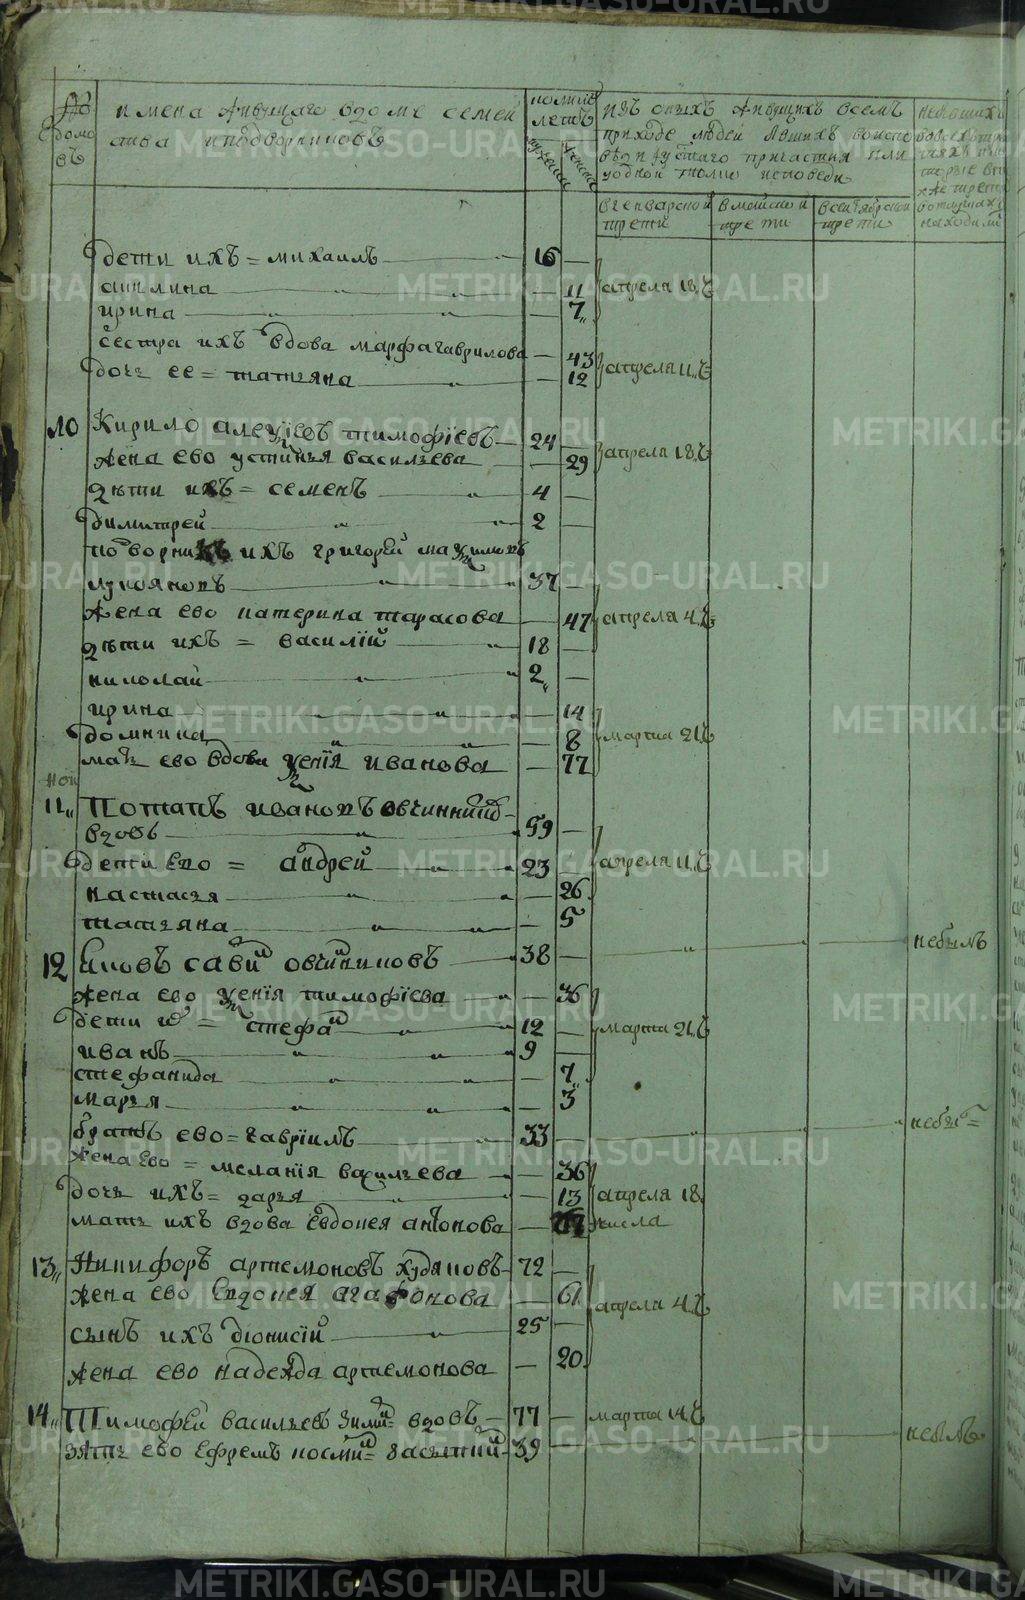 № домовъ
имена живущаго вдоме семейства иподворниковъ
по мимо летъ
мужеска
женска
изъ оныхъ живущихъ всемъ
приходе людей бывшихъ уиспо
веди и устаго причастия или
уодной толко исповеди
вгенварской трети
вмайской трети
всентябрской трети
дети ихъ = михаилъ 16 —
акилина — 11 апреля 18,Ч
ирина — 7
сестра ихъ вдова марфа гаврилова — 43
дочь ее = татьяна — 12 апреля 11,Ч
10 Кирило алеѯіевъ тимофіевъ 24 —
жена ево устинья васильева — 29 апреля 18,Ч
дѣти ихъ = семенъ 4 —
димитрей 2 —
подворникъ ихъ григорей маѯимовъ
лукояновъ 37 —
жена ево катерина тарасова — 47 апреля 4,Ч
дѣти ихъ = василій 18 —
николай 2 —
ирина — 14
домнина — 8 марта 21,Ч
мать ево вдова ѯенія иванова — 77
11 Потапъ ивановъ овчинни
вдовъ 59 —
дети ево = андрей 23 — апреля 11,Ч
настасья — 26
татьяна — 5
12 Яковъ сави овчиниковъ 38 — небылъ
жена ево ѯенія тимофіева — 36
дети и = стефа 12 — марта 21,Ч
иванъ 9 —
стефанида — 7
марья — 3
братъ ево = гавріилъ 33 — небы
жена ево = меланія васильева — 36
дочь ихъ = дарья — 13 апреля 18
мать ихъ вдова евдокея антонова — числа
13 Никифоръ артемоновъ худяковъ 72 —
жена ево Евдокея агафонова — 61 апреля 4,Ч
сынъ ихъ діонисій 25 —
жена ево надежда артемонова — 20
14 Тимофей васильевъ Зими вдовъ 77 — марта 14,Ч
зять ево Ефремъ косми засыпкй 39 небылъ
METRIKI.GASO-URAL.RU